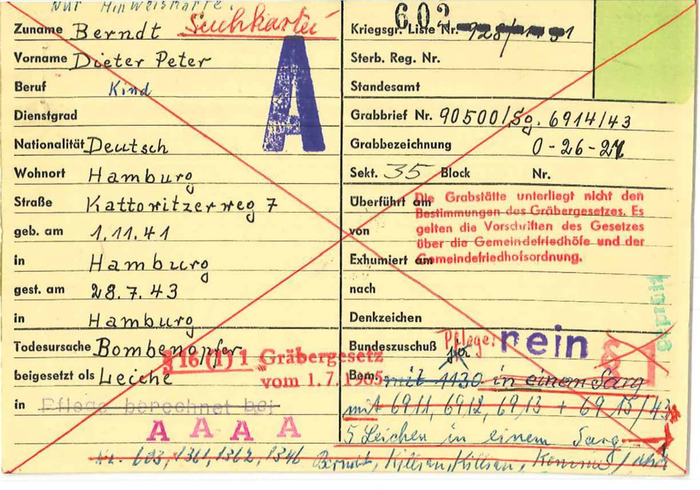 Nur Hinweiskarte.
Suchkartei
Zuname Berndt
Vorname Dieter Peter
Beruf Kind
Dienstgrad
Nationalität Deutsch
Wohnort Hamburg
Straße Kattowitzerweg 7
geb. am 1.11.41
in Hamburg
gest. am 28.7.43
in Hamburg
Todesursache Bombenopfer
§ 16 (1) 1 Gräbergesetz
vom 1.7.1965
beigesetzt als Leiche
in Pflege berechnet bei
A A A A
A
602
Kriegsgr. Liste Nr.
Sterb. Reg. Nr.
Standesamt
Grabbrief Nr. 90500/Sg. 6914/43
Grabbezeichnung O-26-21
Sekt. 35 Block Nr.
Überführt am
von
Exhumiert am
nach
Die Grabstätte unterliegt nicht den
Bestimmungen des Gräbergesetzes. Es
gelten die Vorschriften des Gesetzes
über die Gemeindefriedhöfe und der
Gemeindefriedhofsordnung.
Denkzeichen
Bundeszuschuß Pflege: nein
Bem. mit 1130 in einem Sarg
mit 6911, 6912, 6913 + 6915/43
5 Leichen in einem Sarg
1361, 1362, 1346 Berndt, Killian, Killian,